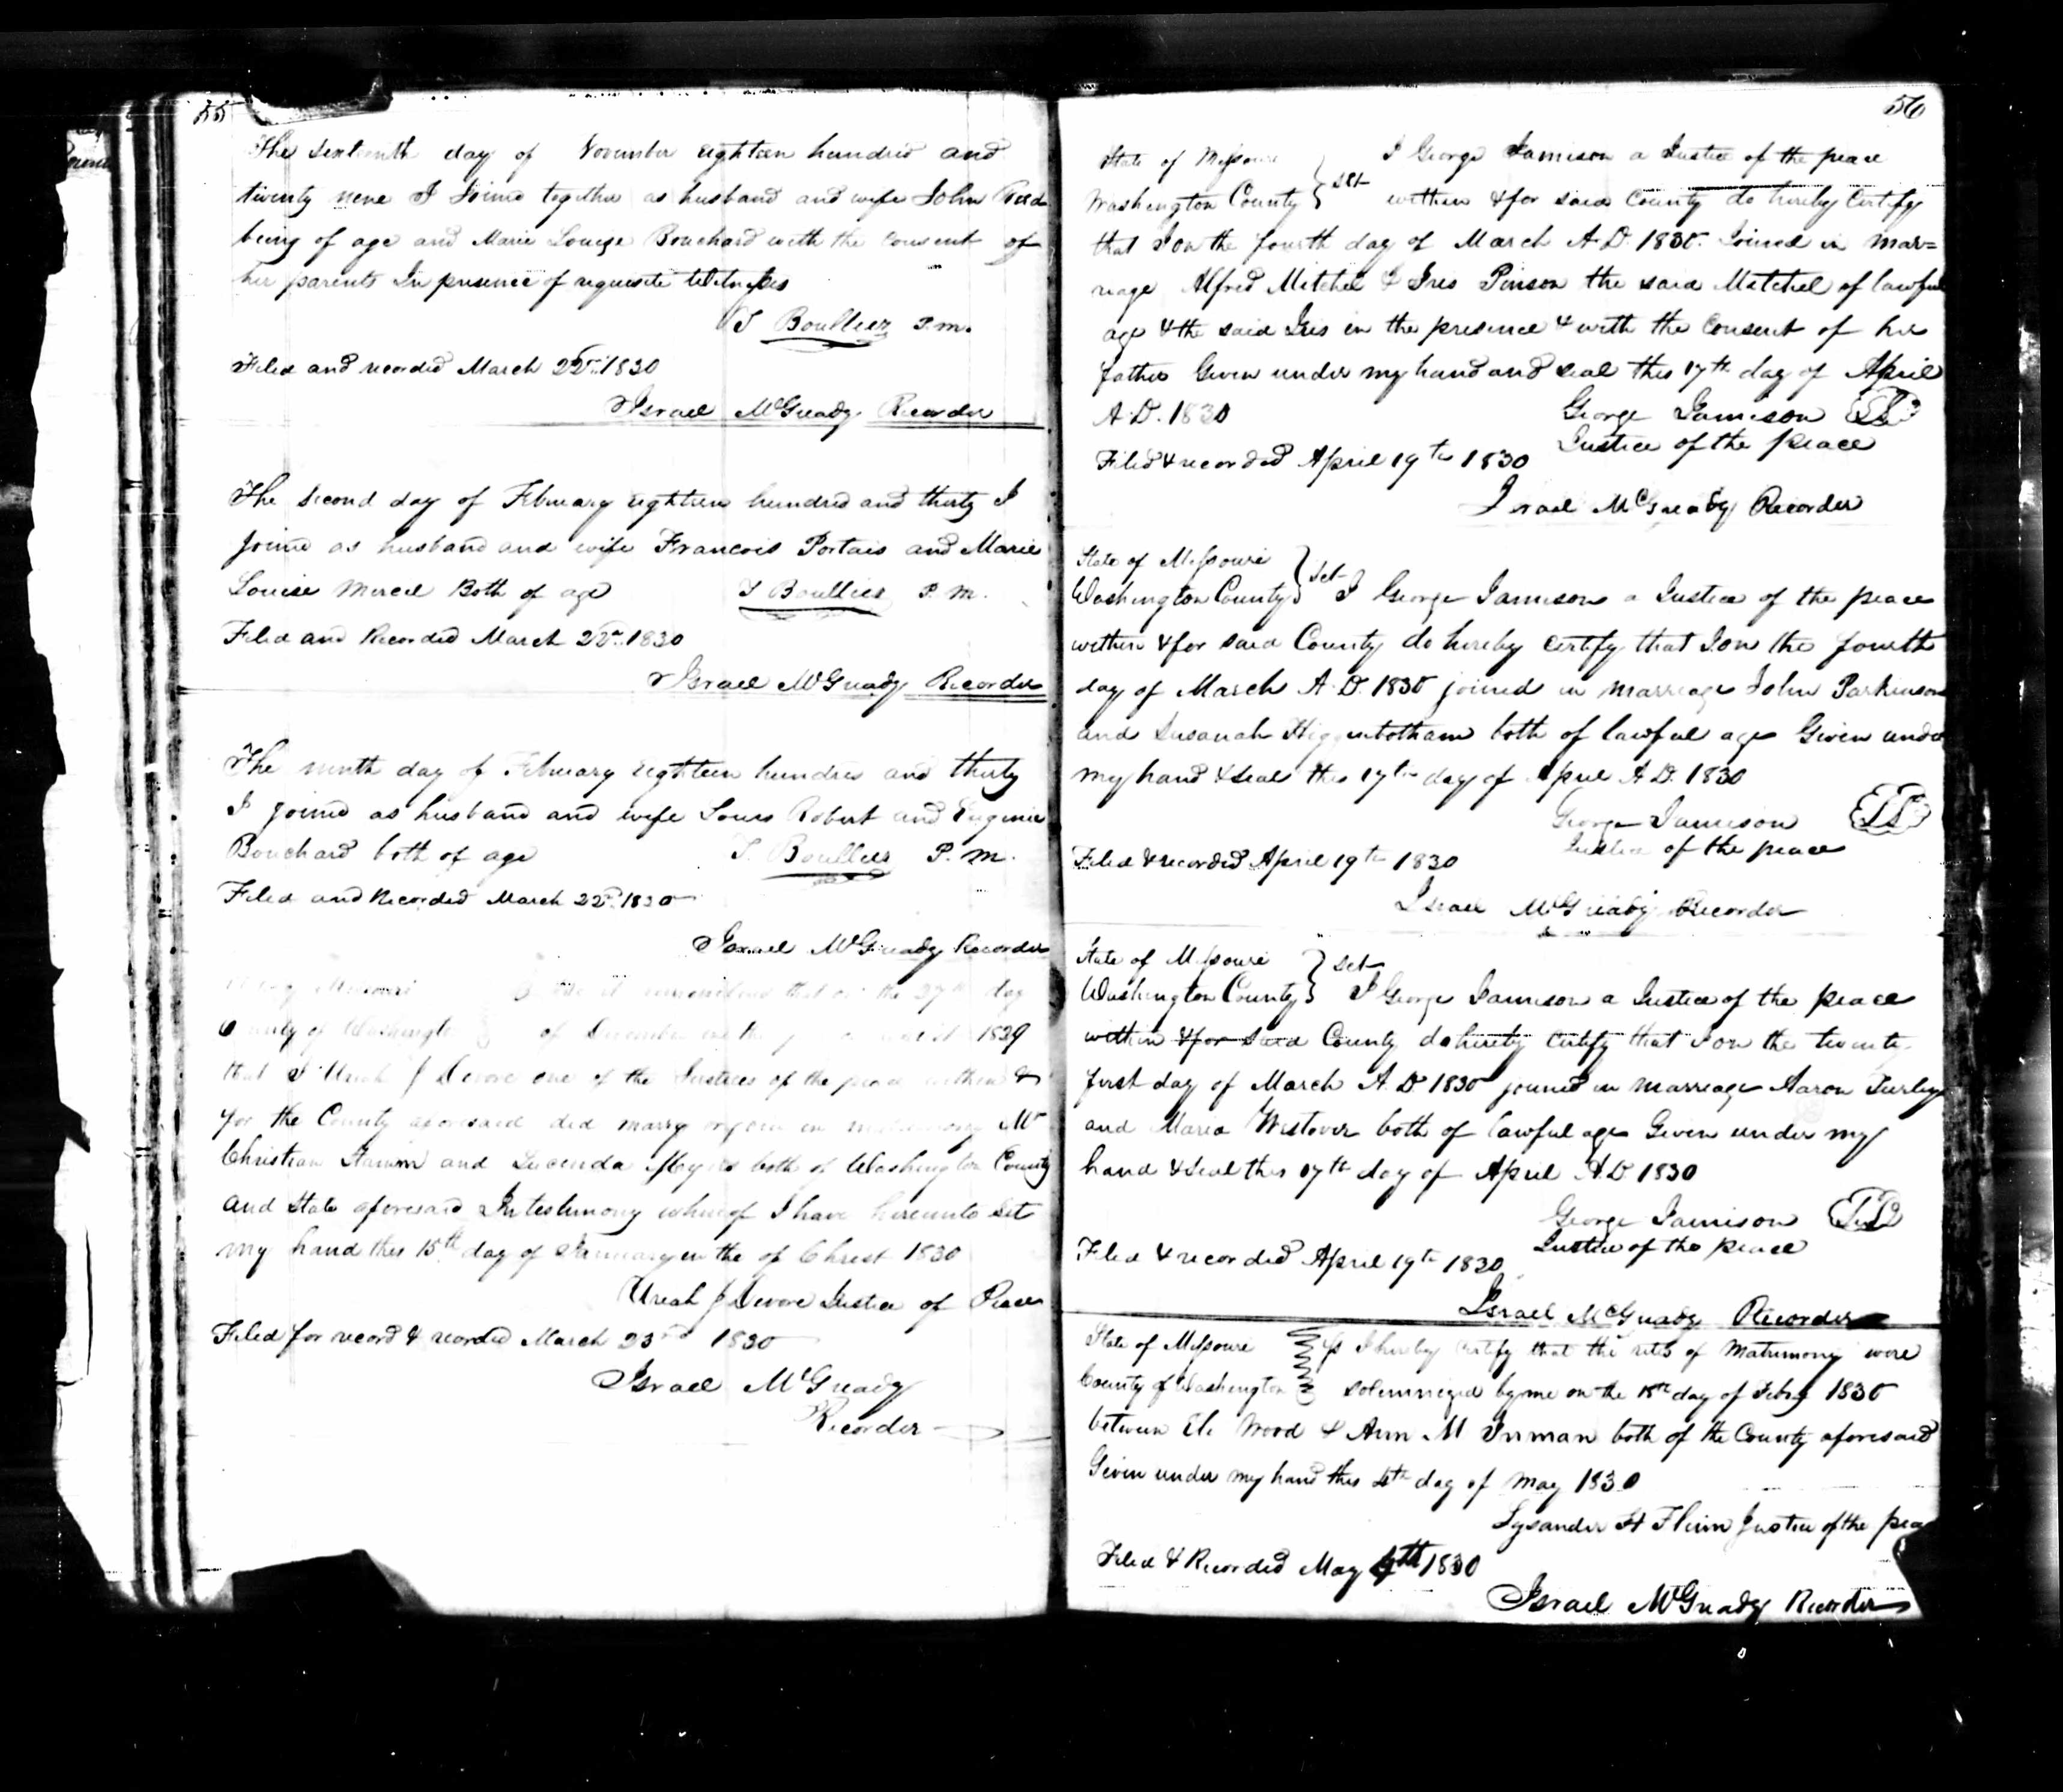 55
The Sixteenth day of November eighteen hundred and
twenty nene I Joined together as husband and wife John
being of age and Marie Louise Bouchard with the Consent of
her parents In presence of requisite Witnesses
Boullier P.M.
Filed and recorded March 22nd 1830
Israel McGready Recorder
The Second day of February eighteen hundred and thirty I
Joined as husband and wife Francois Portais and Marie
Louise Both of age Boullier P.M.
Filed and Recorded March 22nd 1830
Israel McGready Recorder
The ninth day of February eighteen hundred and thirty
I joined as husband and wife Louis Robert and Eugenie
Bouchard both of age Boullier P.M.
Filed and Recorded March 22nd 1830
Israel McGready Recorder
Missouri Be it remembered that on the 27th day
County of Washington of December in the 1829
that I Uriah J Devore one of the Justices of the peace within &
for the County aforesaid did marry or join in matrimony Mr
Christian and Lucinda both of Washington County
and State aforesaid In testimony whereof I have hereunto Set
my hand this 15th day of January in the of Christ 1830
Uriah J Devore Justice of Peace
Filed for record & recorded March 23rd 1830
Israel McGready
Recorder
56
State of Missouri } sct I George Jamison a Justice of the peace
Washington County } within & for said County do hereby Certify
that I on the fourth day of March A.D. 1830. Joined in mar=
riage Alfred Mitchel & Iris Pinson the said Mitchel of lawful
age & the said Iris in the presence & with the Consent of her
father Given under my hand and seal this 17th day of April
A.D. 1830 George Jamison LS
Justice of the peace
Filed & recorded April 19th 1830
Israel McGready Recorder
State of Missouri } sct
Washington County } I George Jamison a Justice of the peace
within & for said County do hereby certify that I on the fourth
day of March A.D. 1830 joined in marriage John Parkinson
and Susanah Higginbotham both of lawful age Given under
my hand & seal this 17th day of April A.D. 1830
George Jamison LS
Justice of the peace
Filed & recorded April 19th 1830
Israel McGready Recorder
State of Missouri } sct
Washington County } I George Jamison a Justice of the peace
within & for said County do hereby certify that I on the twenty
first day of March A.D 1830 joined in marriage Aaron Turley
and Maria Westover both of lawful age Given under my
hand & seal this 17th day of April A.D 1830
George Jamison LS
Justice of the peace
Filed & recorded April 19th 1830
Israel McGready Recorder
State of Missouri I hereby certify that the rites of Matrimony were
County of Washington solemnized by me on the 18th day of Feby 1830
between Eli Wood & Ann M Inman both of the County aforesaid
Given under my hand this 4th day of May 1830
Lysander H Flinn Justice of the pea
Filed & Recorded May 4th 1830
Israel McGready Recorder